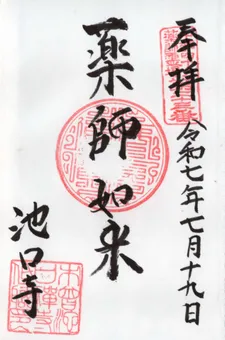 奉拝
令和七年七月十九日
薬師如来
池口寺